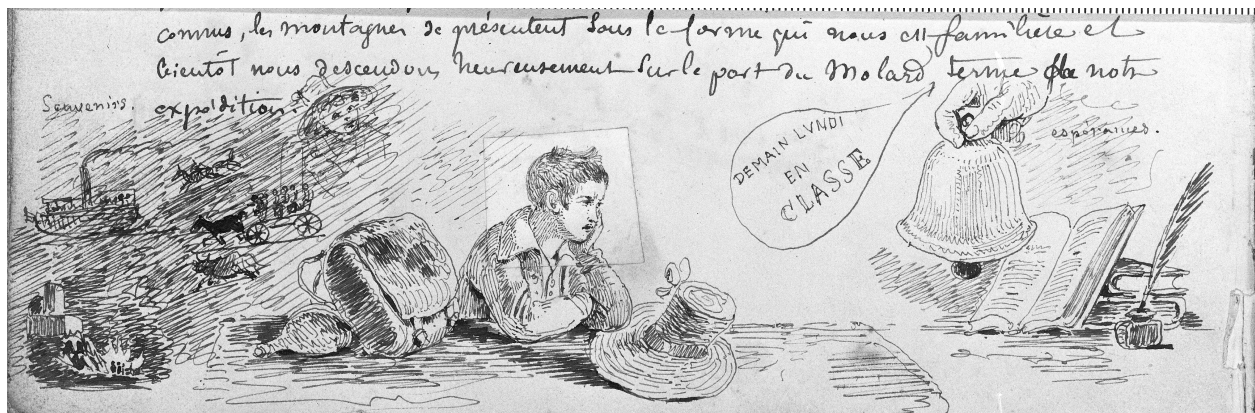 connus, les montagnes se présentent sous la forme qui nous est familière et
bientôt nous descendons heureusement sur le port du Molard terme de notre
expédition.
Souvenirs.
DEMAIN LVNDI
EN
CLASSE
espérances.